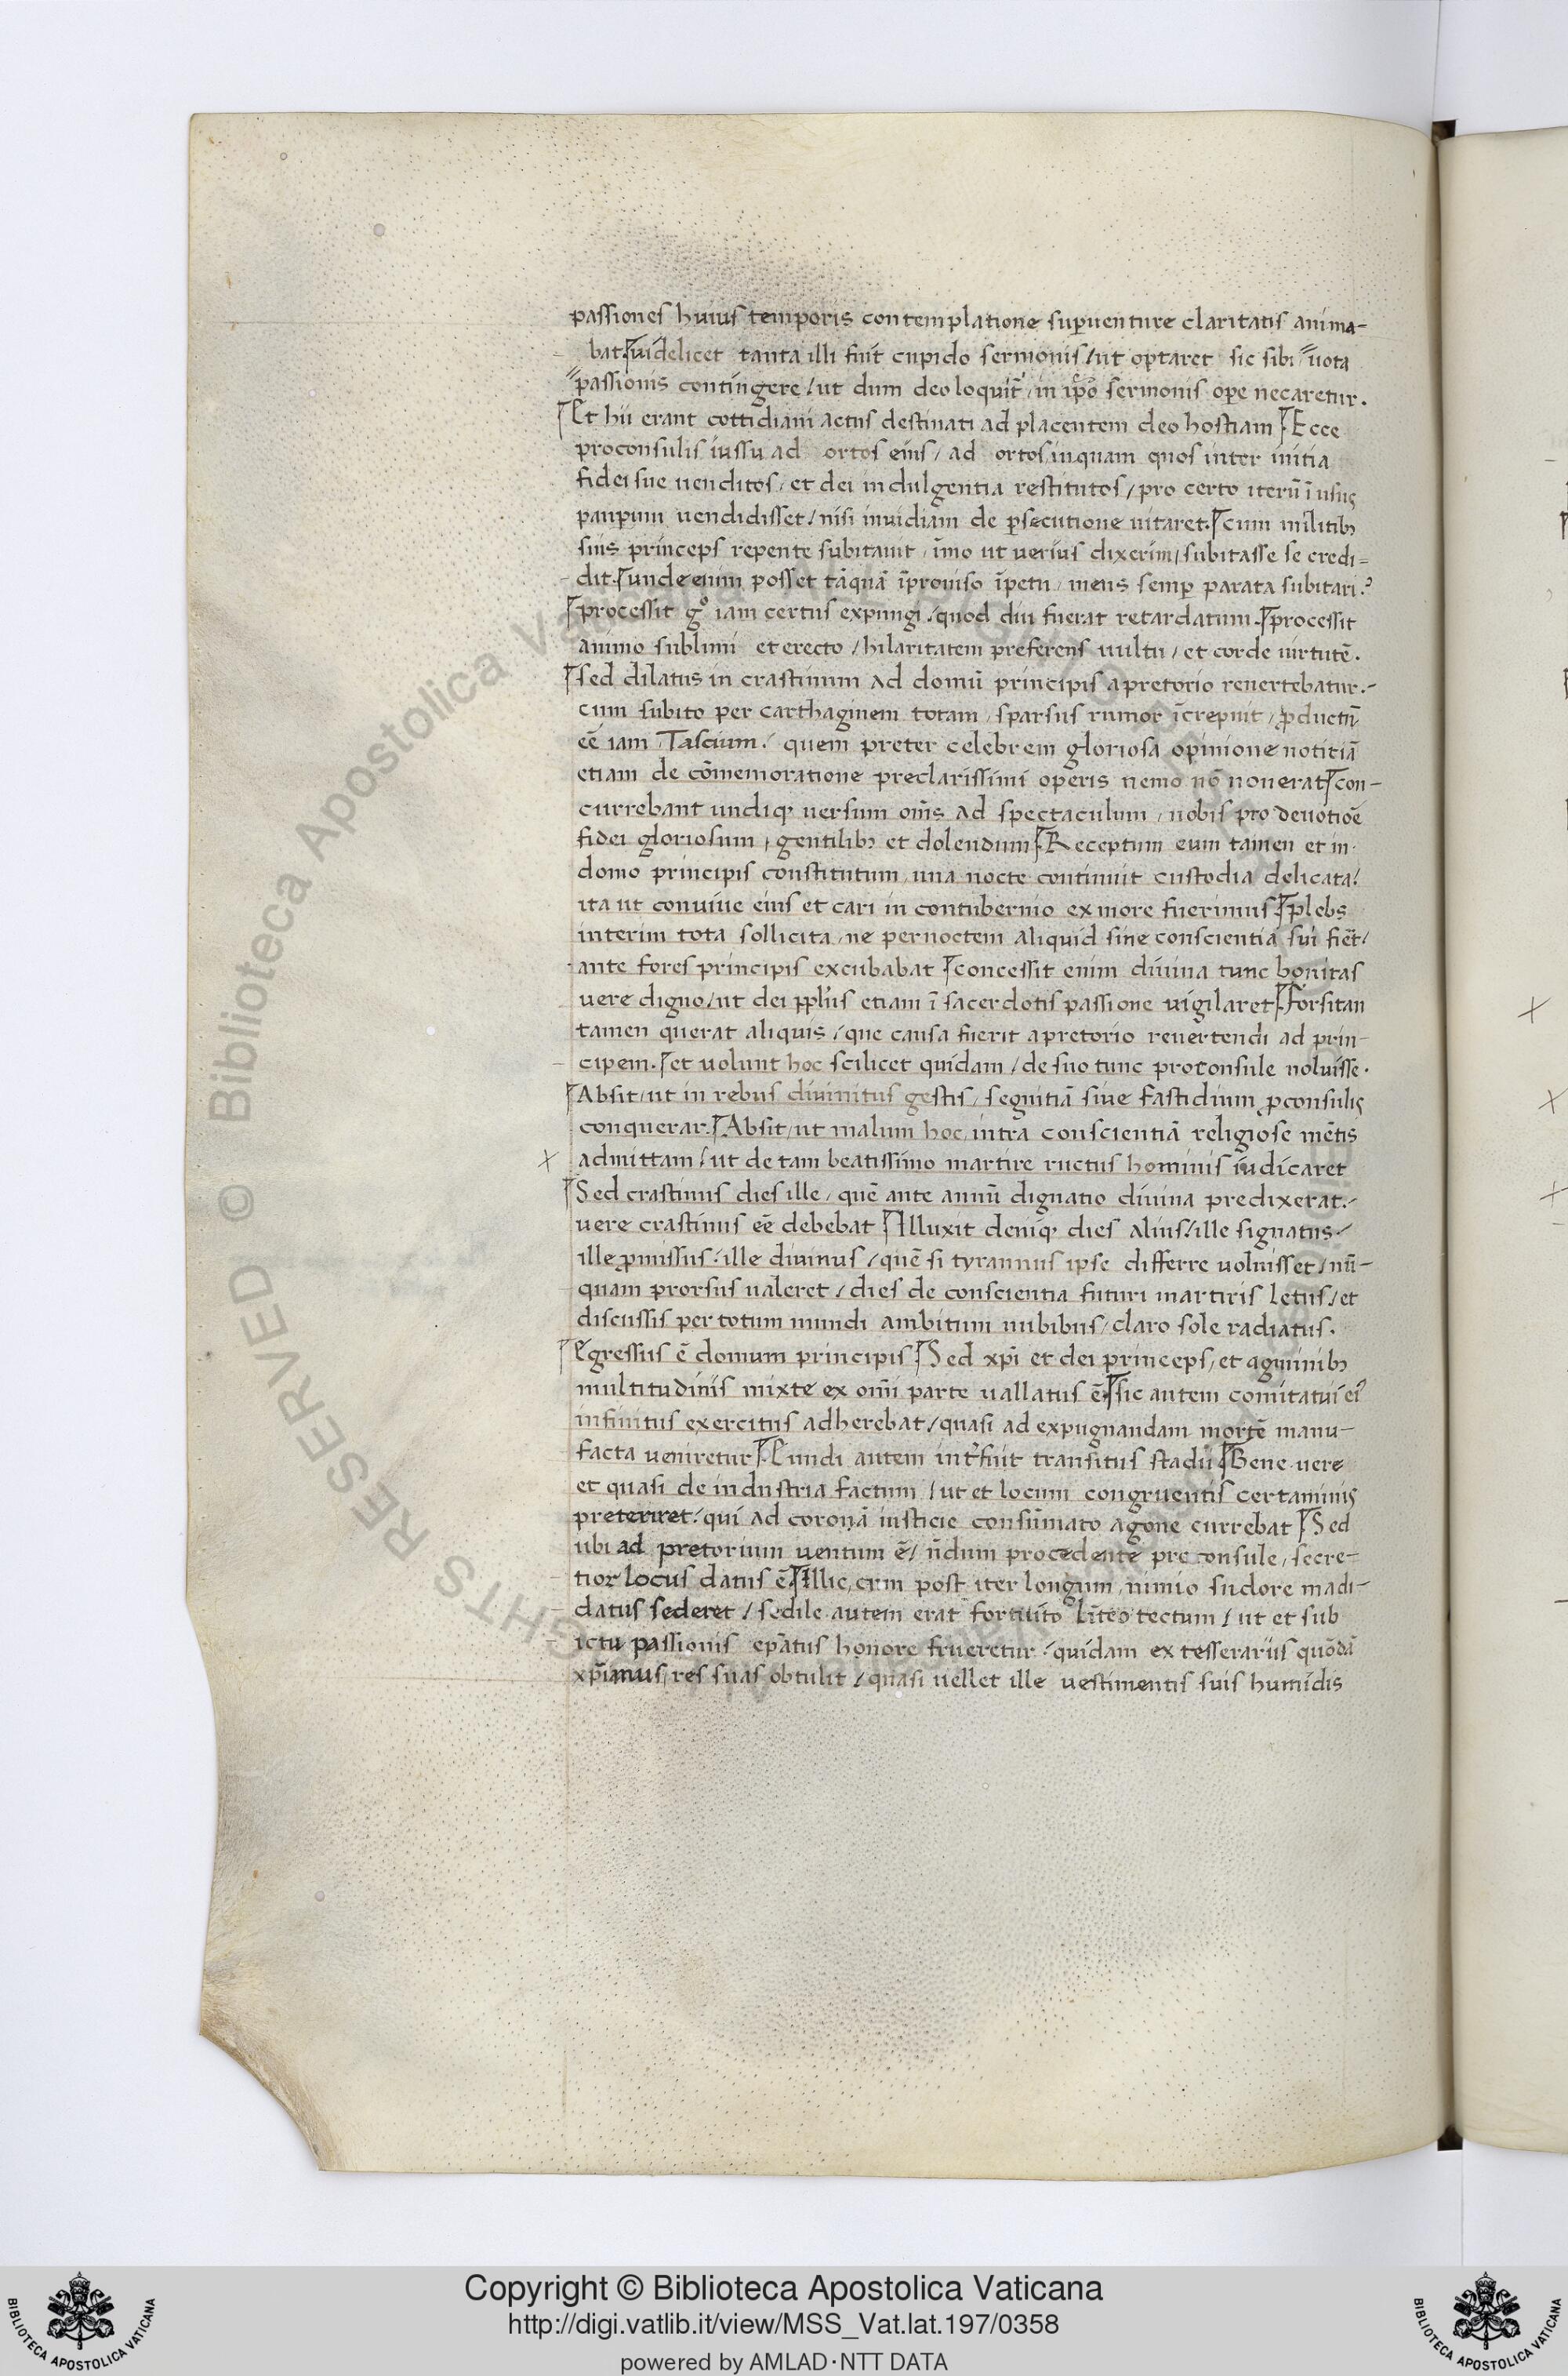 passiones huius temporis contemplatione supuenture claritatis anima-
bat. uidelicet tanta illi fuit cupido sermonis / ut optaret sic sibi uota
passionis contingere / ut dum deo loquit̃ / in ip̃o sermonis ope necaretur.
Et hii erant cottidiani actus destinati ad placentem deo hostiam Ecce
proconsulis iussu ad ortos eius / ad ortos inquam quos inter initia
fidei sue uenditos / et dei indulgentia restitutos / pro certo iterũ ĩ usus
paupum uendidisset / nisi inuidiam de psecutione uitaret. cum militibꝫ
suis princeps repente subitauit / ĩmo ut uerius dixerim / subitasse se credi=
dit. unde enim posset tãquã ĩprouiso ĩpetu / mens semp parata subitari?
processit gº iam certus expungi / quod diu fuerat retardatum. processit
animo sublimi et erecto / hilaritatem preferens uultu / et corde uirtutẽ.
sed dilatus in crastinum ad domũ principis apretorio reuertebatur.-
cum subito per carthaginem totam / sparsus rumor ĩcrepuit / ꝓductũ
eẽ iam Tascium / quem preter celebrem gloriosa opinione notitiã
etiam de cõmemoratione preclarissimi operis nemo nõ nouerat con-
currebant undiqꝫ uersum om̃s ad spectaculum / nobis pro deuotiõe
fidei gloriosum / gentilibꝫ et dolendum. Receptum eum tamen et in
domo principis constitutum una nocte continuit custodia delicata /
ita ut conuiue eius et cari in contubernio ex more fuerimus. plebs
interim tota sollicita / ne pernoctem aliquid sine conscientia sui fiẽt /
ante fores principis excubabat concessit enim diuina tunc bonitas
uere digno / ut dei pp̃lus etiam ĩ sacerdotis passione uigilaret. Forsitan
tamen querat aliquis / que causa fuerit apretorio reuertendi ad prin-
cipem. et uolunt hoc scilicet quidam / de suo tunc proconsule noluisse.
Absit / ut in rebus diuinitus gestis / segnitiã siue fastidium ꝓconsulis
conquerar. Absit / ut malum hoc intra conscientiã religiose mẽtis
admittam / ut de tam beatissimo martire ructus hominis iudicaret
Sed crastinus dies ille / quẽ ante annũ dignatio diuina predixerat.-
uere crastinus eẽ debebat Illuxit deniqꝫ dies alius / ille signatus /
ille ꝓmissus / ille diuinus / quẽ si tyrannus ipse differre uoluisset / nũ-
quam prorsus ualeret / dies de conscientia futuri martiris letus / et
discussis per totum mundi ambitum nubibus / claro sole radiatus.
Egressus ẽ domum principis Sed xp̃i et dei princeps / et agminibꝫ
multitudinis mixte ex om̃i parte uallatus ẽ. sic autem comitatui eiꝰ
infinitus exercitus adherebat / quasi ad expugnandam mortẽ manu-
facta ueniretur. Eundi autem int̃fuit transitus stadii. Bene uere
et quasi de industria factum / ut et locum congruentis certaminis
preteriret / qui ad coronã iusticie consũmato agone currebat Sed
ubi ad pretorium uentum ẽ / ñdum procedente preconsule / secre-
tior locus datus ẽ. Illic cum post iter longum nimio sudore madi-
datus sederet / sedile autem erat fortuito lĩteo tectum / ut et sub
ictu passionis ep̃atus honore frueretur / quidam ex tesserariis quõdã
xp̃ianus res suas obtulit / quasi uellet ille uestimentis suis humidis
Copyright © Biblioteca Apostolica Vaticana
http://digi.vatlib.it/view/MSS_Vat.lat.197/0358
powered by AMLAD·NTT DATA
BIBLIOTECA APOSTOLICA VATICANA
BIBLIOTECA APOSTOLICA VATICANA